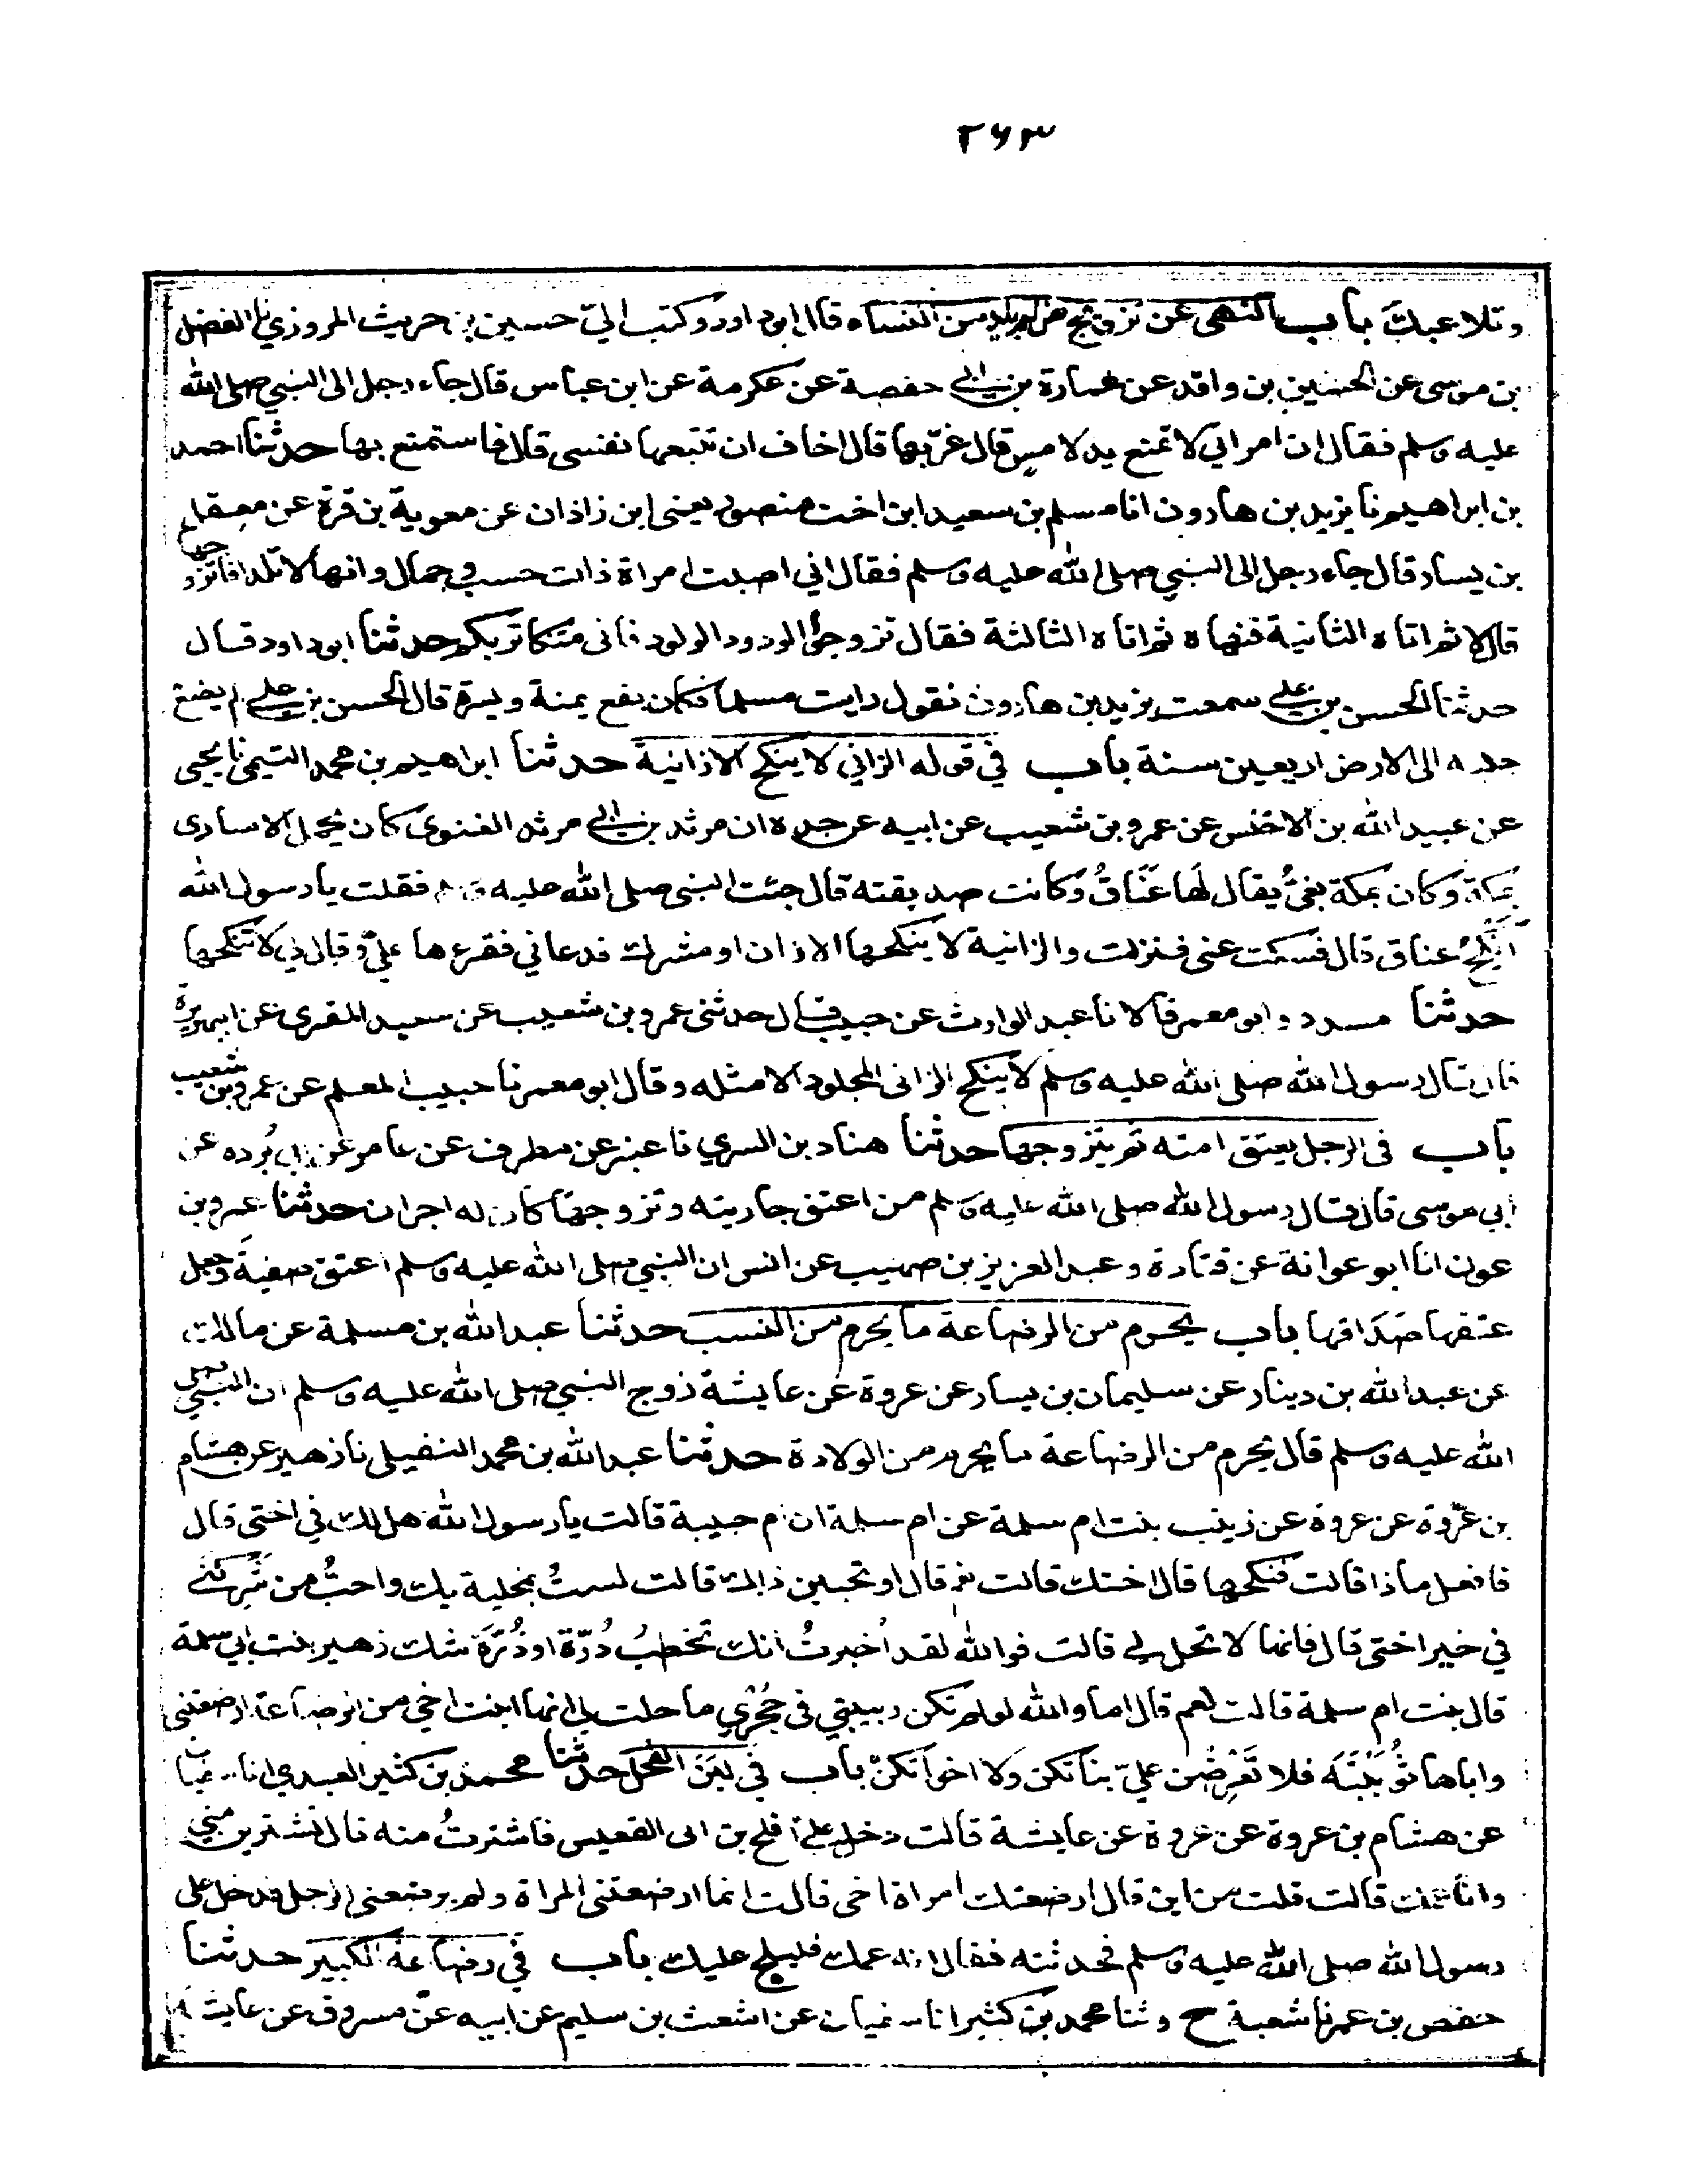 ٢٦٣
وتلاعبك باب النهى عن تزويج من لم يلد من النساء قال ابو داود وكتب اليّ حسين بن حريث المروزي نا الفضل
بن موسى عن الحسين بن واقد عن عمارة بن ابي حفصة عن عكرمة عن ابن عباس قال جاء رجل الى النبي صلى الله
عليه وسلم فقال ان امراتي لا تمنع يد لامس قال غرّبها قال اخاف ان تتبعها نفسى قال فاستمتع بها حدثنا احمد
بن ابراهيم نا يزيد بن هارون انا مسلم بن سعيد ابن اخت منصور يعنى ابن زاذان عن معوية بن قرة عن معقل
بن يسار قال جاء رجل الى النبي صلى الله عليه وسلم فقال اني اصبت امراة ذات حسب وجمال وانها لا تلد افاتزوجها
قال لا ثم اتاه الثانية فنهاه ثم اتاه الثالثة فقال تزوجوا الودود الولود فانى متكاثر بكم حدثنا ابو داود قال
حدثنا الحسن بن علي سمعت يزيد بن هارون نقول رايت مسلما فكان يفع يمنة ويسرة قال الحسن بن علي لم يضع
جلده الى الارض اربعين سنة باب في قوله الزاني لا ينكح الا زانية حدثنا ابراهيم بن محمد التيمى نا يحيى
عن عبيد الله بن الاخنس عن عمرو بن شعيب عن ابيه عن جده ان مرثد بن ابي مرثد الغنوى كان يحمل الاسارى
بمكة وكان بمكة بغيٌّ يقال لَها عَنَاقُ وكانت صديقته قال جئت النبى صلى الله عليه وسلم فقلت يا رسول الله
اَنْكِحُ عناق قال فسكت عنى فنزلت والزانية لا ينكحها الا زان او مشرك فدعاني فقرءها عليّ وقال لي لا تنكحها
حدثنا مسدد وابو معمر قالا نا عبد الوارث عن حبيب قال حدثنى عمرو بن شعيب عن سعيد المقبرى عن ابى هريرة
قال قال رسول الله صلى الله عليه وسلم لا ينكح الزانى المجلود الا مثله وقال ابو معمر نا حبيب المعلم عن عمرو بن شعيب
باب فى الرجل يعتق امته ثم يتزوجها حدثنا هناد بن السري نا عبثر عن مطرف عن عامر عن ابى بُرده عن
ابي موسى قال قال رسول الله صلى الله عليه وسلم من اعتق جاريته وتزوجها كان له اجران حدثنا عمرو بن
عون انا ابو عوانة عن قتادة وعبد العزيز بن صهيب عن انس ان النبي صلى الله عليه وسلم اعتق صفية وجعل
عتقها صَدَاقها باب يحرم من الرضاعة ما يحرم من النسب حدثنا عبد الله بن مسلمة عن مالك
عن عبد الله بن دينار عن سليمان بن يسار عن عروة عن عايشة زوج النبي صلى الله عليه وسلم ان النبي صلى
الله عليه وسلم قال يحرم من الرضاعة ما يحرم من الولادة حدثنا عبد الله بن محمد النفيلى نا زهير عن هشام
بن عروة عن عروة عن زينب بنت ام سلمة عن ام سلمة ان ام حبيبة قالت يا رسول الله هل لك في اختى قال
فافعل ماذا قالت فتنكحها قال اختك قالت نعم قال او تحبين ذلك قالت لستُ بمخلية بك واحبُّ من شَرِكَنى
في خير اختى قال فانها لا تحل لي قالت فوالله لقد اُخبرتُ انك تخطبُ دُرّةَ او ذُرَّةَ شك زهير بنت ابي سلمة
قال بنت ام سلمة قالت نعم قال اما والله لو لم تكن ربيبتي فى حَجْري ما حلت لي انها ابنت اخي من الرضاعة ارضعتنى
واباها ثُوَيْبَةَ فلا تَعْرِضْن عليّ بناتكن ولا اخواتكنّ باب في لبَن الفحل حدثنا محمد بن كثير العبدي انا سفيان
عن هشام بن عروة عن عروة عن عايشة قالت دخل علىّ افلح بن ابى القعيس فاستترتُ منه قال تستترين منى
وانا عمك قالت قلت من اين قال ارضعتك امراة اخى قالت انما ارضعتنى المراة ولم يرضعنى الرجل فدخل على
رسول الله صلى الله عليه وسلم فحدثته فقال انه عمك فليلج عليك باب فى رضاعة الكبير حدثنا
حفص بن عمر نا شعبة ح وثنا محمد بن كثير انا سفيان عن اشعث بن سليم عن ابيه عن مسروق عن عايشة